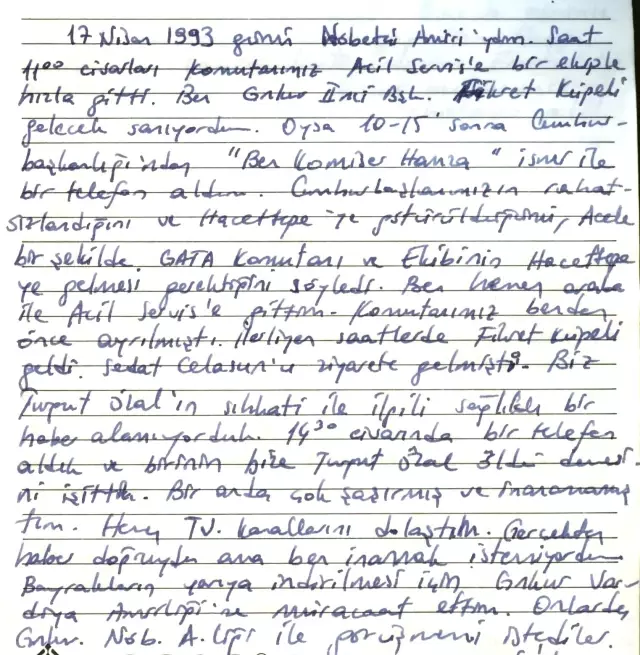 17 Nisan 1993 günü Nöbetçi Amiri'ydim. Saat
11⁰⁰ civarları Komutanımız Acil Servis'e bir ekiple
hızla gitti. Ben Gnkur IInci Bşk. Fikret Küpeli
gelecek sanıyordum. Oysa 10-15' sonra Cumhur-
başkanlığı'ndan "Ben Komiser Hamza" ismi ile
bir telefon aldım. Cumhurbaşkanımızın rahat-
sızlandığını ve Hacettepe'ye götürüldüğünü, Acele
bir şekilde GATA Komutanı ve Ekibinin Hacettepe
ye gelmesi gerektiğini söyledi. Ben hemen araba
ile Acil Servis'e gittim. Komutanımız benden
önce ayrılmıştı. İlerliyen saatlerde Fikret Küpeli
geldi. Sedat Celasun'u ziyarete gelmişti. Biz
Turgut Özal'ın sıhhati ile ilgili sağlıklı bir
haber alamıyorduk. 14³⁰ civarında bir telefon
aldık ve birinin bize Turgut Özal öldü demesi-
ni işittik. Bir anda çok şaşırmış ve inanamamış
tım. Hemen TV. kanallarını dolaştım. Gerçekten
haber doğruydu ama ben inanmak istemiyordum
Bayrakların yarıya indirilmesi için Gnkur Var-
diya Amirliği'ne müracaat ettim. Onlarda
Gnkur. Nöb. A.liği ile görüşmemi istediler.